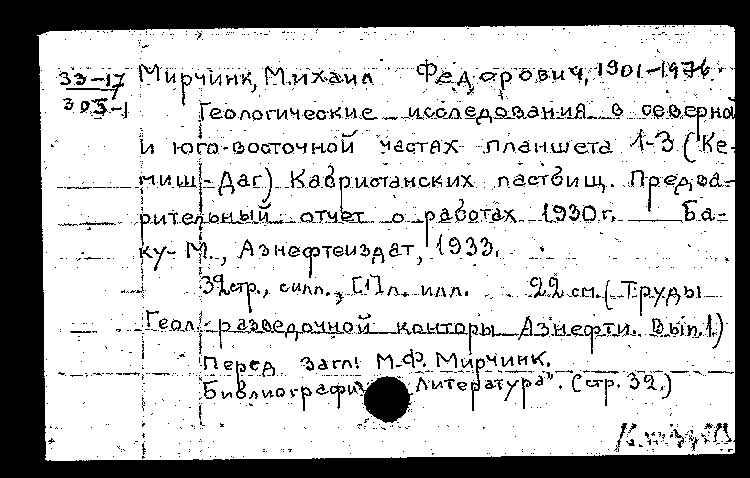 33-17
303-1
Мирчинк, Михаил Федорович, 1901-1976.
Геологические исследования в северной
и юго-восточной частях планшета 1-3 (Ке-
миш-Даг) Кабристанских пастбищ. Предва-
рительный отчет о работах 1930г. Ба-
ку-М., Азнефтеиздат, 1933.
32стр., с илл., [1] л. илл. 22 см. (Труды
Геол-разведочной конторы Азнефти. Вып.1)
Перед загл: М.Ф. Мирчинк.
Библиография "Литература". (стр. 32.)